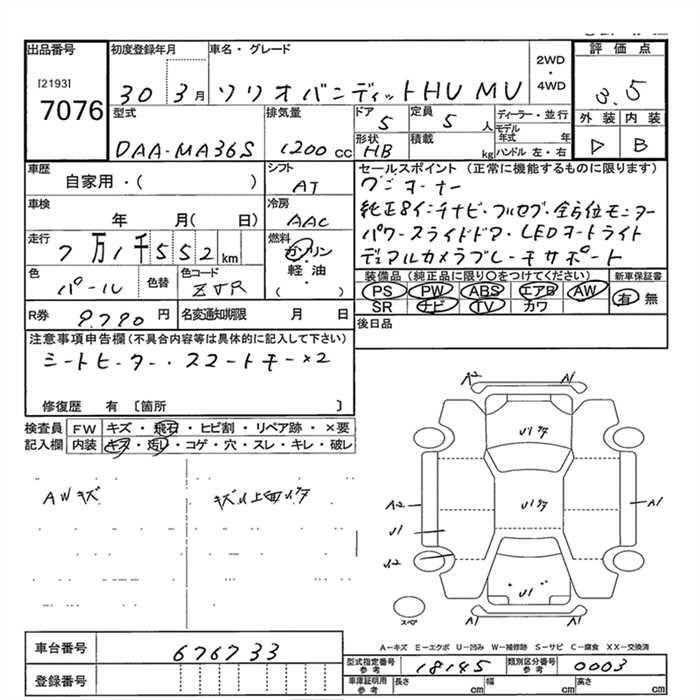 出品番号 初度登録年月 車名・グレード 評価点
[2193]
7076
30 3月 ソリオバンディットHV MV
2WD
・
4WD
3.5
外装 内装
B
型式 排気量 ドア 定員 ディーラー・並行
DAA-MA36S 1200cc 5 5人
モデル年式 年
形状 積載 ハンドル 左・右
HB kg
車歴 シフト セールスポイント (正常に機能するものに限ります)
自家用・( ) AT ワンオーナー
車検 冷房 純正8インチナビ・フルセグ・全方位モニター
年 月( 日) AAC パワースライドドア・LEDヘッドライト
走行 燃料 デュアルカメラブレーキサポート
7万1千552km ガソリン
軽・油
( )
色 色替 色コード
パール ZVR
装備品(純正品に限り○をつけてください) 新車保証書
PS PW ABS エアB AW 有 無
SR ナビ TV カワ
R券 9.790円 名変通知期限 月 日
後日品
注意事項申告欄(不具合内容等は具体的に記入して下さい)
シートヒーター・スマートキー×2
修復歴 有〔箇所 〕
検査員 FW キズ・飛石・ヒビ割・リペア跡・×要
記入欄 内装 キズ・汚レ・コゲ・穴・スレ・キレ・破レ
AWキズ
A2 A1
A2 A1
U1
A1 A1
スペア
A-キズ E-エクボ U-凹み W-補修跡 S-サビ C-腐食 XX-交換済
車台番号 676733
登録番号
型式指定番号 参考 18145 類別区分番号 参考 0003
車庫証明用 参考 長さ cm 幅 cm 高さ cm